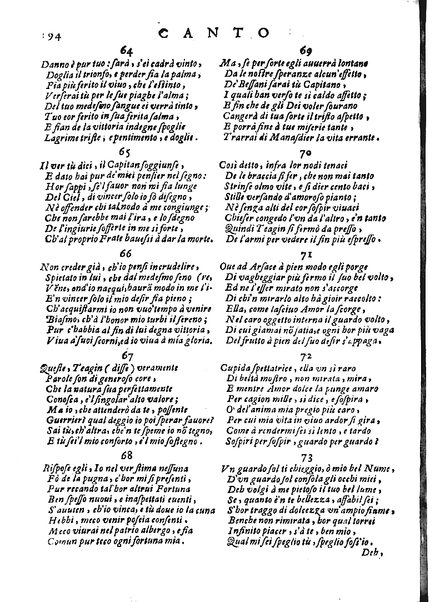 94
CANTO
64
Danno è pur tuo: sarà, s'ei cadrà vinto,
Doglia il trionfo, e perder fia la palma,
Fia più ferito il vivo, che l'estinto,
Verserai tù per le sue piaghe l'alma;
Del tuo medesmo sangue ei verrà tinto,
Tuo cor ferito in sua ferita salma,
E fian de la vittoria indegne spoglie
Lagrime triste, e pentimento, e doglie.
65
Il ver tù dici, il Capitan soggiunse,
E dato hai pur de' miei pensier nel segno:
Hor sappi, se'l favor non mi sia lunge
Del Ciel, di vincer solo io fò disegno,
Nè offender chi tal nodo à me congiunge;
Che non sarebbe mai l'ira, e lo sdegno
De l'ingiurie sofferte in me sì forte,
Ch'al proprio Frate havessi à dar la morte.
66
Non creder già, ch'io pensi incrudelire,
Spietato in lui, che dal medesmo seno
Vne, ond'io nacqui, havrà modo in me l'i- (re,
E'n vincer solo il mio desir fia pieno;
Ch'acquistarmi io non vuo tempo à venire
Biasmo, ch'à l'honor mio turbi il sereno;
Pur c'habbia al fin di lui degna vittoria,
Viua a' suoi scorni, ed io viua à mia gloria.
67
Queste, Teagin (disse) veramente
Parole son di generoso core,
Che la natura sua perfettamente
Conosca, e'l singolar' alto valore;
Ma io, che attender ò da te, possente
Guerrier? qual deggio io poi sperar favore?
Sai tù, ch'altra, che'n te speme io nõ segno,
E tù sei'l mio conforto, e'l mio sostegno.
68
Rispose egli, Io nel ver stima nessuna
Fò de la pugna, c'hor mi si presenti,
Pur recando tal'hor altrui Fortuna
Ben spesso nuoui, e inaspettati euenti,
S'auuien, ch'io vinca, e tù doue io la cuna
Hebbi, meco venir poscia consenti.
Meco viurai nel patrio albergo, e fia
Comun pur teco ogni fortuna mia.
69
Ma, se per sorte egli auuerrà lontano
Da le nostre speranze alcun'effetto,
De' Bessani farai tù Capitano,
I quali ban verso te si caldo affetto;
E fin che de gli Dei voler sourano
Cangerà di tua sorte il tristo aspetto,
E porrà fine à tue miserie tante,
Trarrai di Manasdier la vita errante.
70
Così detto, infra lor nodi tenaci
De le braccia si fer, che non mai tanto
Strinse olmo vite, e si dier cento baci,
Stille versando d'amoroso pianto;
Nè senza alti del cor sospir viuaci
Chieser congedo l'vn da l'altro, e'n tanto
Quindi Teagin si fermò da presso,
De l'armi per vedere il fin più espresso.
71
Oue ad Arsace à pien modo egli porge
Di vagheggiar più fermo il suo bel volto,
Ed ella'l mister errante non s'accorge
Di chi'n mirarlo alto hà gioir raccolto:
Ella, come lasciuo Amor la scorge,
Nel caro oggetto interna il guardo volto,
Di cui giamai nõ satia, e ogni hor più vaga
Del frutto à pien del suo desir s'appaga.
72
Cupida spettatrice, ella vn sì raro
Di beltà mostro, non mirata, mira,
E mentre Amor dolce la punge amaro
Per cagion mille, si dice, e sospira,
O de l'anima mia pregio più caro,
Per cui mia vita in viuo ardor si gira,
Come à rendermi sei sì tardo
Sospir per sospir, guardo per guardo?
73
Vn guardo sol ti chieggio, ò mio bel Nume,
D'vn guardo sol consola gli occhi miei,
Deh volgi à me pietoso il tuo bel lume,
Se, quanto è'n te bellezza, affabil sei;
S'hor traggo di dolcezza vn'ampio fiume,
Benche non rimirata, hor qual torrei
Infinito piacer, s'à te, ben mio,
Qual mi sei speglio tù, speglio foss'io.
Deh,